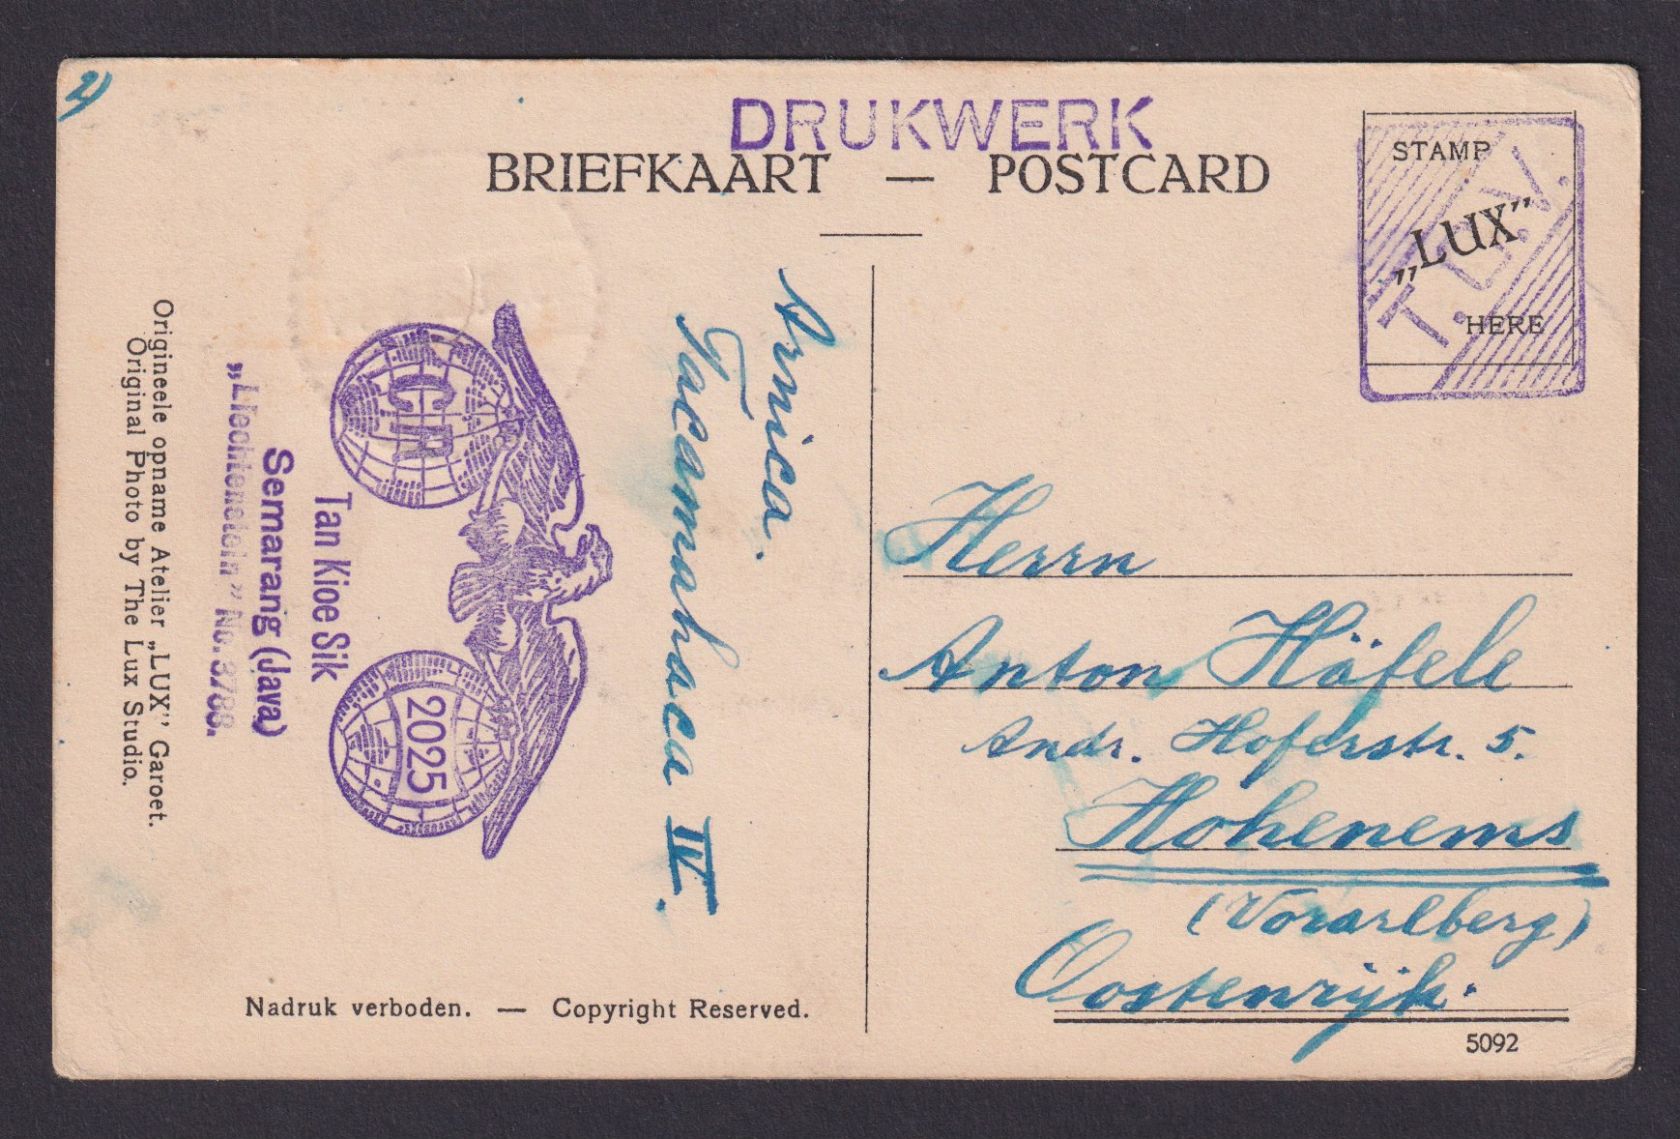 2)
DRUKWERK
BRIEFKAART — POSTCARD
STAMP
„LUX”
HERE
T.C.V.
Arnica.
Tacamahaca IV.
CR
2025
Tan Kioe Sik
Semarang (Java)
„Liechtenstein” No. 3788.
Origineele opname Atelier „LUX” Garoet.
Original Photo by The Lux Studio.
Nadruk verboden. — Copyright Reserved.
Herrn
Anton Häfele
Andr. Hoferstr. 5.
Hohenems
(Vorarlberg)
Oostenrijk.
5092